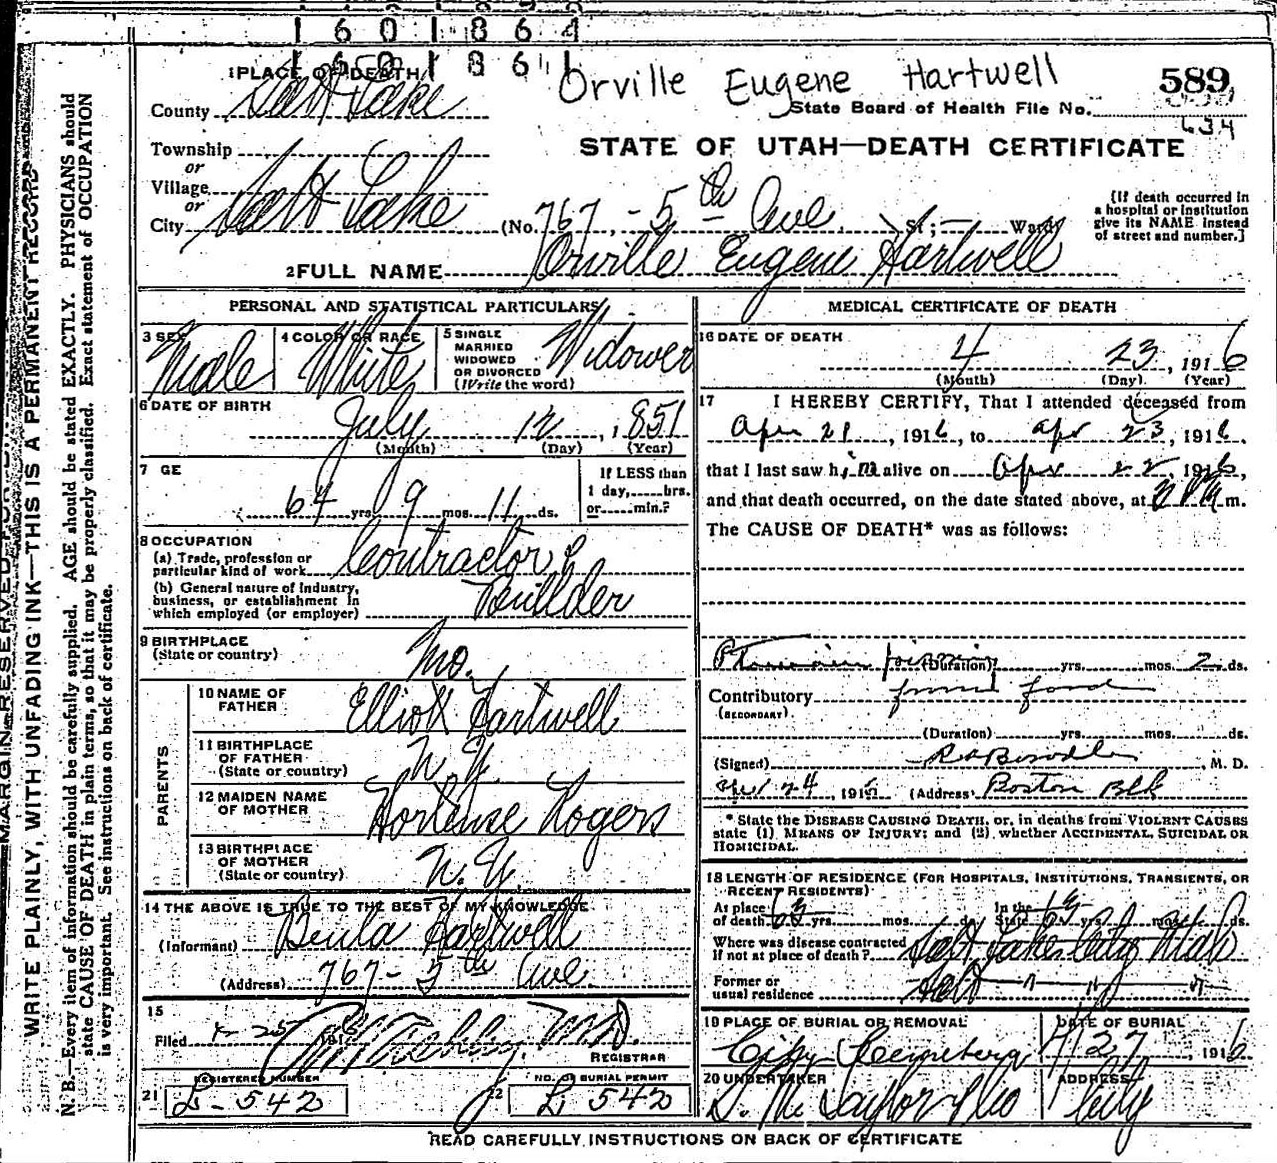 1 6 0 1 8 6 4
1 PLACE OF DEATH
Orville Eugene Hartwell
589
County Salt Lake
State Board of Health File No.
634
Township
STATE OF UTAH—DEATH CERTIFICATE
or
Village
or
City Salt Lake (No. 767 - 5th Ave. St; — Ward)
[If death occurred in a hospital or institution give its NAME instead of street and number.]
2 FULL NAME Orville Eugene Hartwell
PERSONAL AND STATISTICAL PARTICULARS
3 SEX Male
4 COLOR OR RACE White
5 SINGLE MARRIED WIDOWED OR DIVORCED (Write the word) Widower
6 DATE OF BIRTH
July 12, 1851
(Month) (Day) (Year)
7 GE
64 yrs. 9 mos. 11 ds.
If LESS than 1 day, hrs. or min.?
8 OCCUPATION
(a) Trade, profession or particular kind of work Contractor &
(b) General nature of Industry, business, or establishment in which employed (or employer) Buillder
9 BIRTHPLACE
(State or country) Mo.
PARENTS
10 NAME OF FATHER Elliott Hartwell
11 BIRTHPLACE OF FATHER (State or country) N. Y.
12 MAIDEN NAME OF MOTHER Hortense Rogers
13 BIRTHPLACE OF MOTHER (State or country) N. Y.
14 THE ABOVE IS TRUE TO THE BEST OF MY KNOWLEDGE
(Informant) Beula Hartwell
(Address) 767- 5th Ave.
15
Filed 4-25 191 M.D.
REGISTRAR
21 REGISTERED NUMBER L-542
22 NO. OF BURIAL PERMIT L 542
MEDICAL CERTIFICATE OF DEATH
16 DATE OF DEATH
4 23, 1916
(Month) (Day) (Year)
17 I HEREBY CERTIFY, That I attended deceased from
Apr 21, 1916, to Apr 23, 1916,
that I last saw him alive on Apr 22, 1916,
and that death occurred, on the date stated above, at m.
The CAUSE OF DEATH* was as follows:
Ptomain poisoning
(Duration) yrs. mos. 2 ds.
Contributory from food
(SECONDARY)
(Duration) yrs. mos. ds.
(Signed) M. D.
24, 1916 (Address) Boston Blk
* State the DISEASE CAUSING DEATH, or, in deaths from VIOLENT CAUSES state (1) MEANS OF INJURY; and (2) whether ACCIDENTAL, SUICIDAL OR HOMICIDAL.
18 LENGTH OF RESIDENCE (FOR HOSPITALS, INSTITUTIONS, TRANSIENTS, OR RECENT RESIDENTS)
At place of death 63 yrs. mos. ds. In the State 63 yrs. mos. ds.
Where was disease contracted If not at place of death? Salt Lake City Utah
Former or usual residence Salt " " "
19 PLACE OF BURIAL OR REMOVAL
City
DATE OF BURIAL
4/27, 1916
20 UNDERTAKER
S. M. Taylor & Co
ADDRESS
City
READ CAREFULLY INSTRUCTIONS ON BACK OF CERTIFICATE
MARGIN RESERVED FOR
WRITE PLAINLY, WITH UNFADING INK—THIS IS A PERMANENT RECORD
N. B.—Every item of information should be carefully supplied. AGE should be stated EXACTLY. PHYSICIANS should
state CAUSE OF DEATH in plain terms, so that it may be properly classified. Exact statement of OCCUPATION
is very important. See instructions on back of certificate.